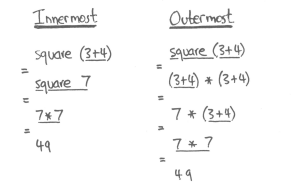 Innermost
square (3+4)
=
square 7
=
7*7
=
49
Outermost
square (3+4)
=
(3+4) * (3+4)
=
7 * (3+4)
=
7 * 7
=
49